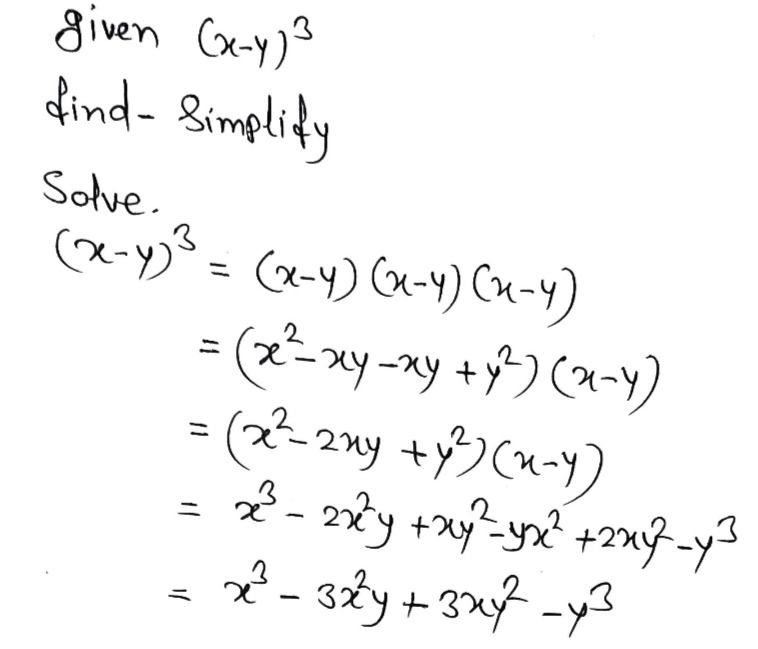 given (x-y)³
find- Simplify
Solve.
(x-y)³ = (x-y) (x-y) (x-y)
= (x²-xy-xy+y²) (x-y)
= (x²-2xy+y²)(x-y)
= x³ - 2x²y +xy²-yx²+2xy²-y³
= x³ - 3x²y + 3xy² - y³